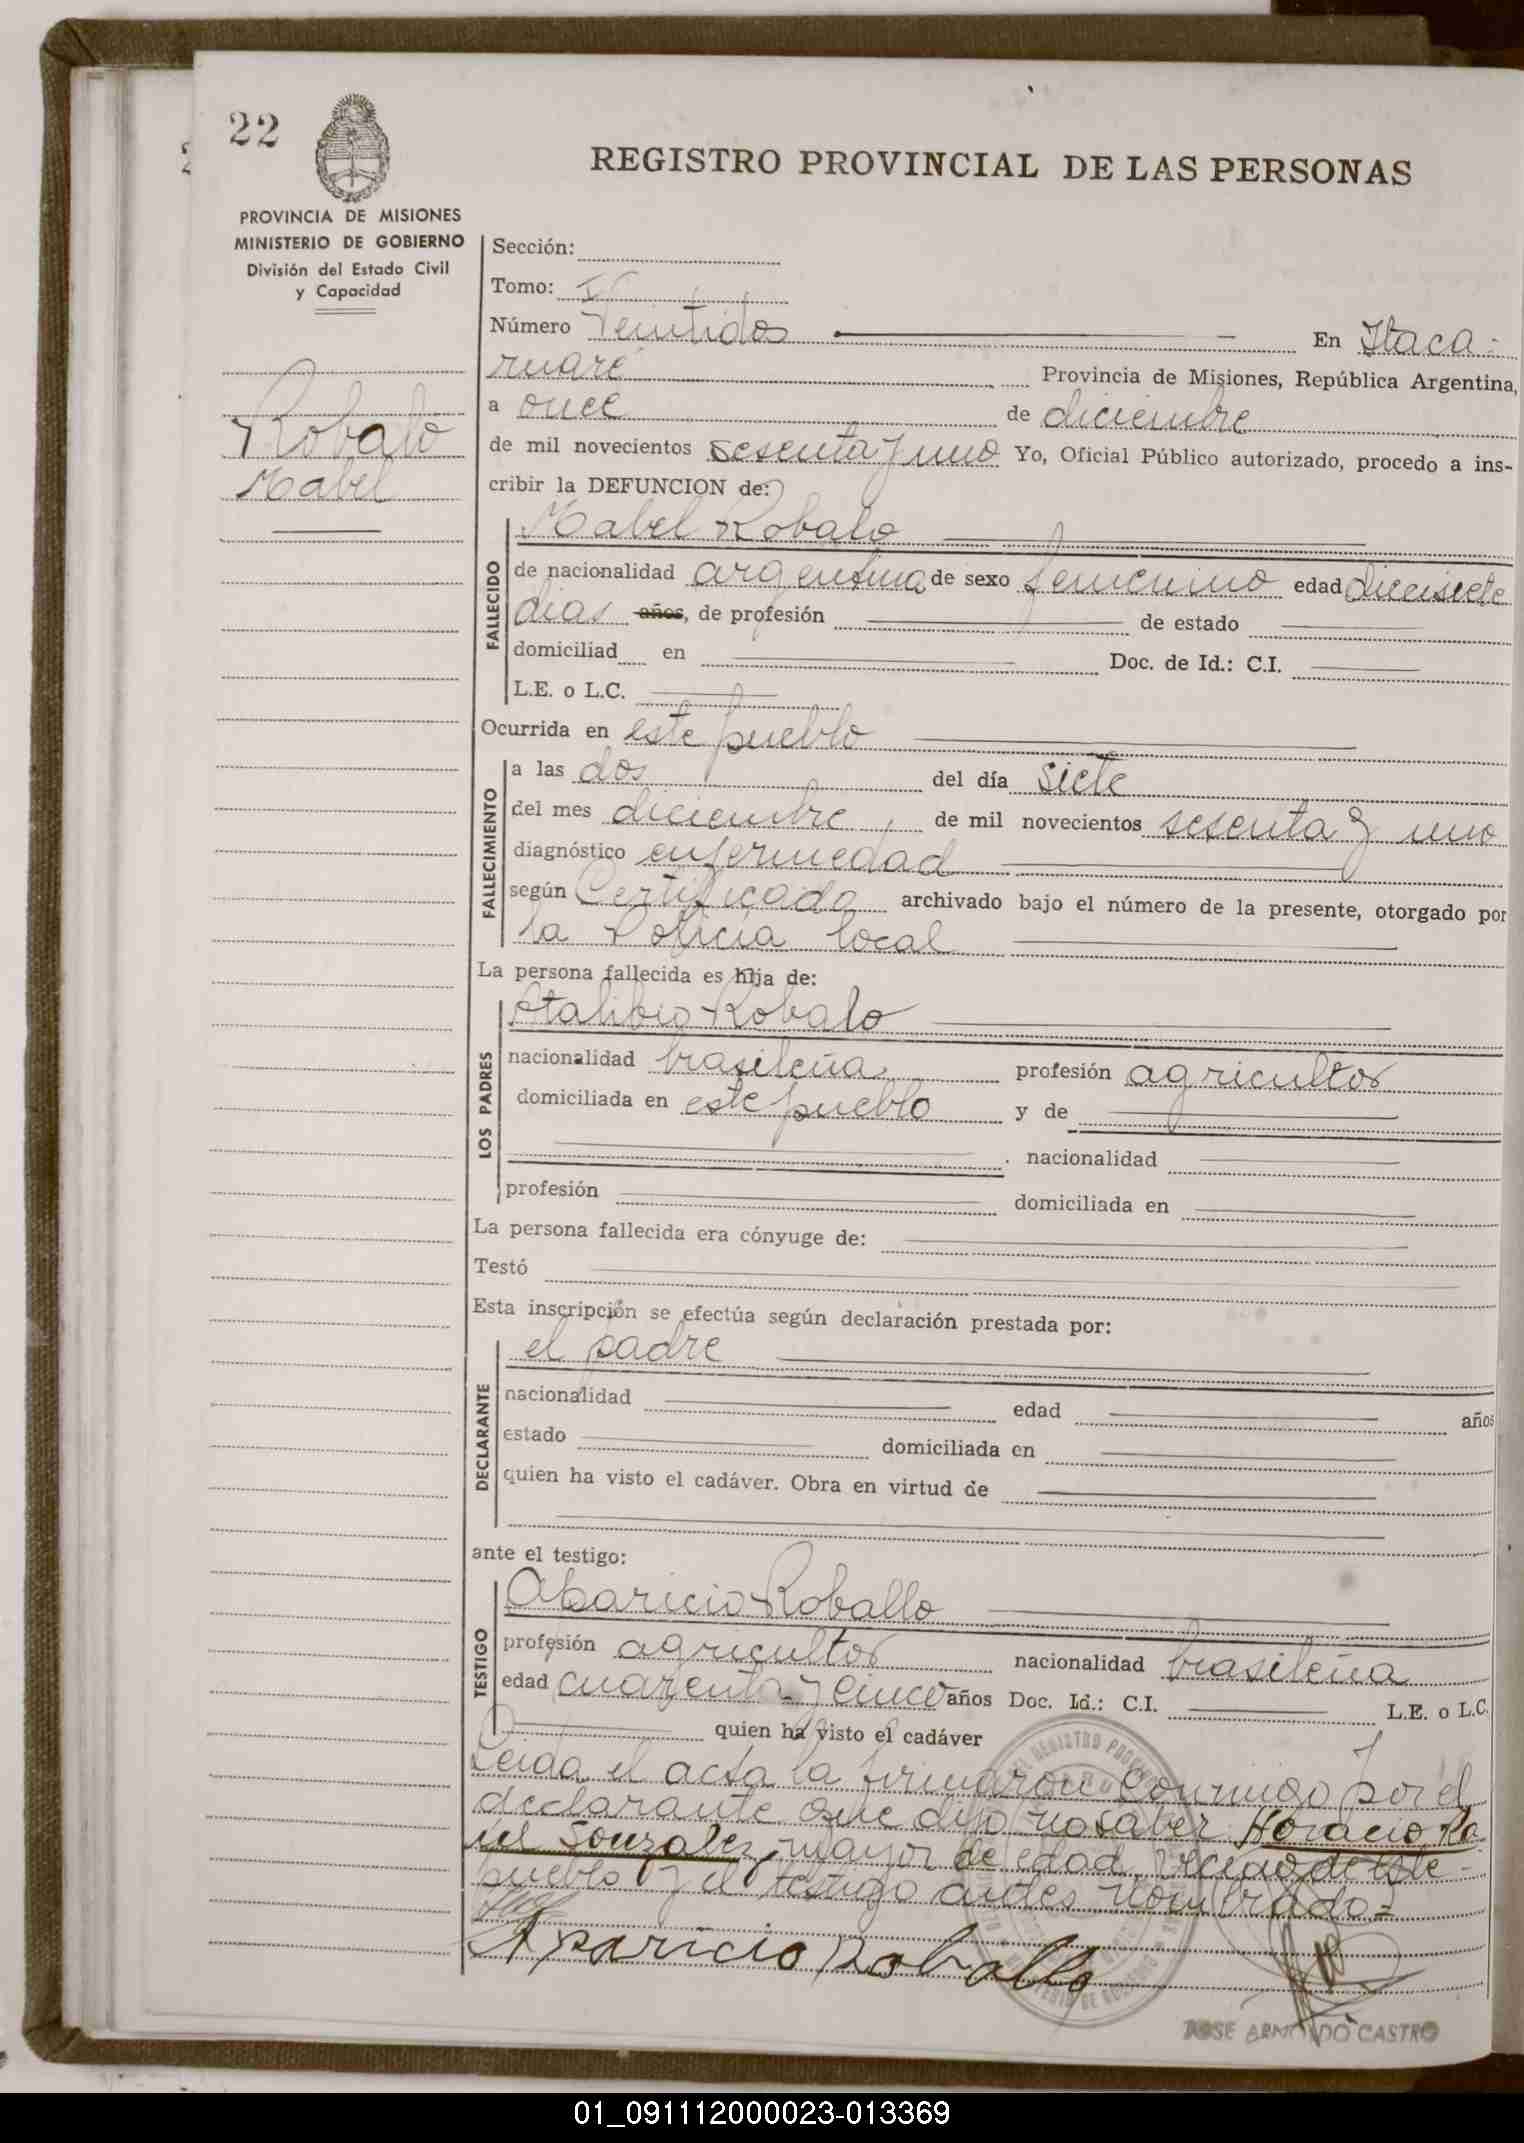 22
REGISTRO PROVINCIAL DE LAS PERSONAS
PROVINCIA DE MISIONES
MINISTERIO DE GOBIERNO
División del Estado Civil
y Capacidad
Robalo
Mabel
Sección:
Tomo: I
Número Veintidos En Itaca-
ruaré Provincia de Misiones, República Argentina,
a once de diciembre
de mil novecientos sesenta y uno Yo, Oficial Público autorizado, procedo a ins-
cribir la DEFUNCION de:
FALLECIDO
Mabel Robalo
de nacionalidad argentina de sexo femenino edad diecisiete
dias años, de profesión de estado
domiciliad en Doc. de Id.: C.I.
L.E. o L.C.
Ocurrida en este pueblo
FALLECIMIENTO
a las dos del día siete
del mes diciembre, de mil novecientos sesenta y uno
diagnóstico enfermedad
según Certificado archivado bajo el número de la presente, otorgado por
la Policia local
La persona fallecida es hija de:
LOS PADRES
Atalibio Robalo
nacionalidad brasileña profesión agricultor
domiciliada en este pueblo y de
nacionalidad
profesión domiciliada en
La persona fallecida era cónyuge de:
Testó
Esta inscripción se efectúa según declaración prestada por:
DECLARANTE
el padre
nacionalidad edad años
estado domiciliada en
quien ha visto el cadáver. Obra en virtud de
ante el testigo:
TESTIGO
Aparicio Roballo
profesión agricultor nacionalidad brasileña
edad cuarenta y cinco años Doc. Id.: C.I. L.E. o L.C.
quien ha visto el cadáver
Leida el acta la firmaron conmigo por el
declarante que dijo no saber Horacio Ra
ul Gonzalez, mayor de edad, vecino de este
pueblo y el testigo antes nombrado=
Aparicio Roballo
JOSE ARMANDO CASTRO
01_091112000023-013369